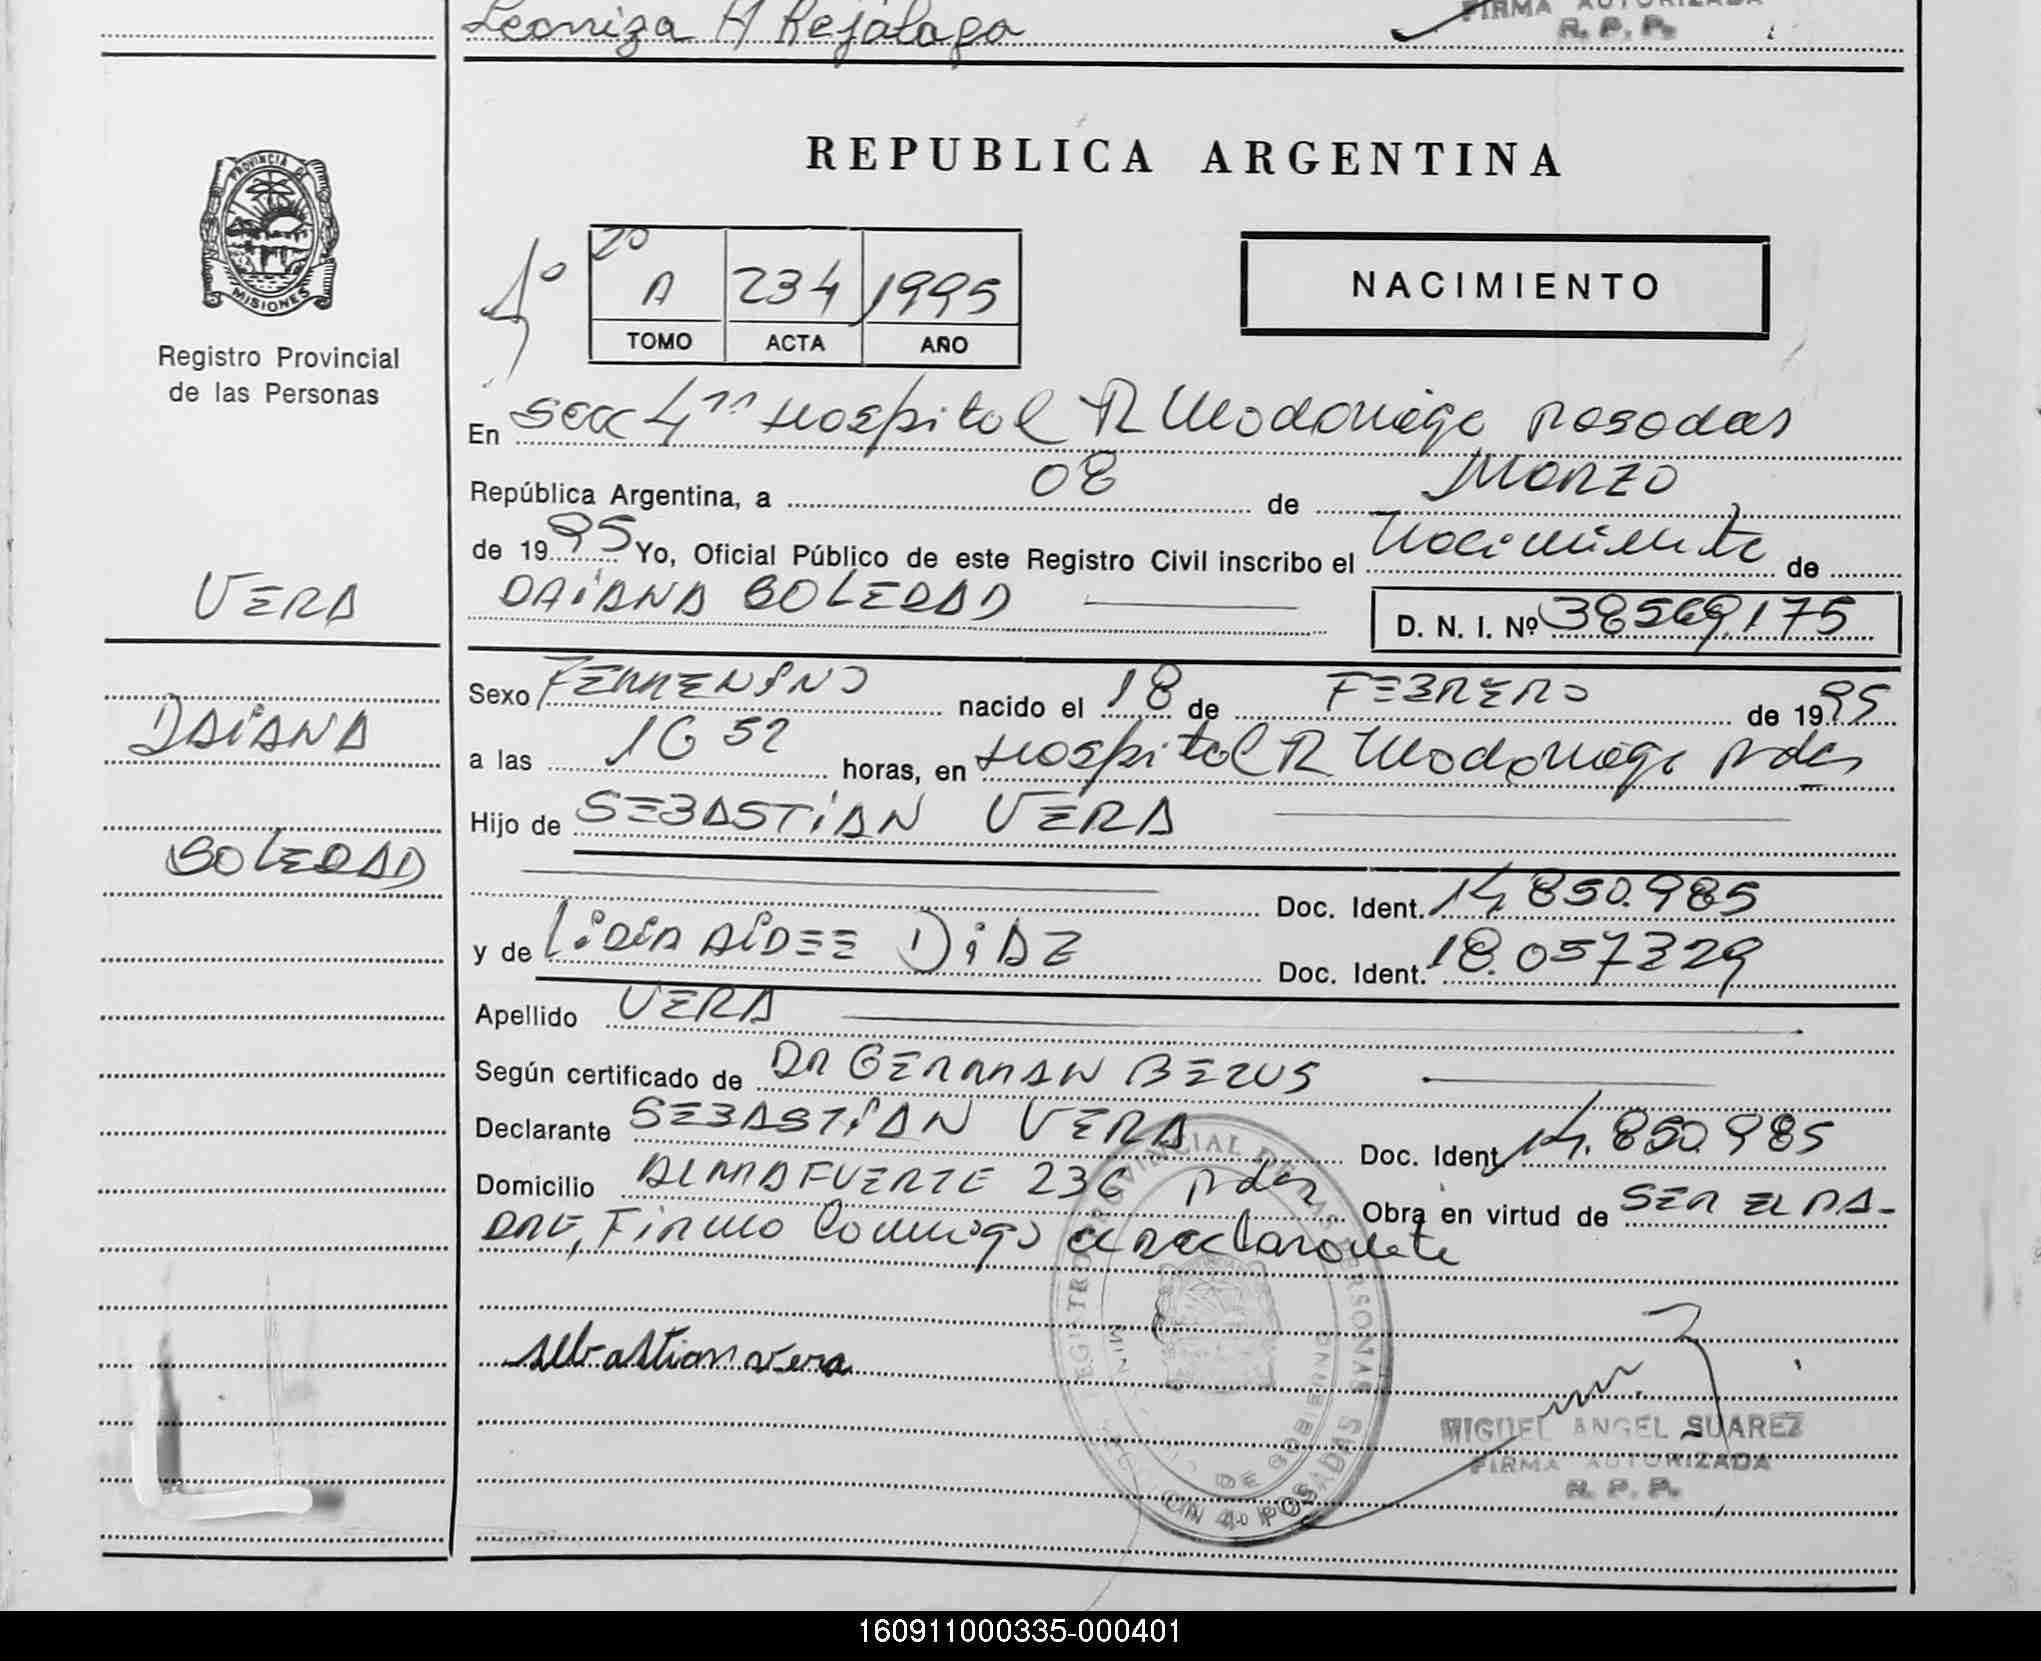 Leoniza A Rejalaga
FIRMA AUTORIZADA
R. P. P.
PROVINCIA DE
MISIONES
Registro Provincial
de las Personas
VERA
DAIANA
SOLEDAD
REPUBLICA ARGENTINA
4º
2º
A 234 1995
TOMO ACTA AÑO
NACIMIENTO
En secc 4ta Hospital R Madariaga Posadas
República Argentina, a 08 de Marzo
de 1995 Yo, Oficial Público de este Registro Civil inscribo el Nacimiento de
DAIANA SOLEDAD D. N. I. Nº 38569,175
Sexo FEMENINO nacido el 18 de FEBRERO de 1995
a las 16 52 horas, en Hospital R Madariaga Pdas
Hijo de SEBASTIAN VERA
Doc. Ident. 14,850.985
y de LIDIA AIDEE DIAZ Doc. Ident. 18.057329
Apellido VERA
Según certificado de DR GERMAN BEZUS
Declarante SEBASTIAN VERA Doc. Ident. 14.850.985
Domicilio ALMAFUERTE 236 Pdas Obra en virtud de SER EL PA-
DRE, Firma Conmigo el declarante
sebastian vera
REGISTRO PROVINCIAL DE LAS PERSONAS
DE GOBIERNO
POSADAS
MIGUEL ANGEL SUAREZ
FIRMA AUTORIZADA
R. P. P.
160911000335-000401